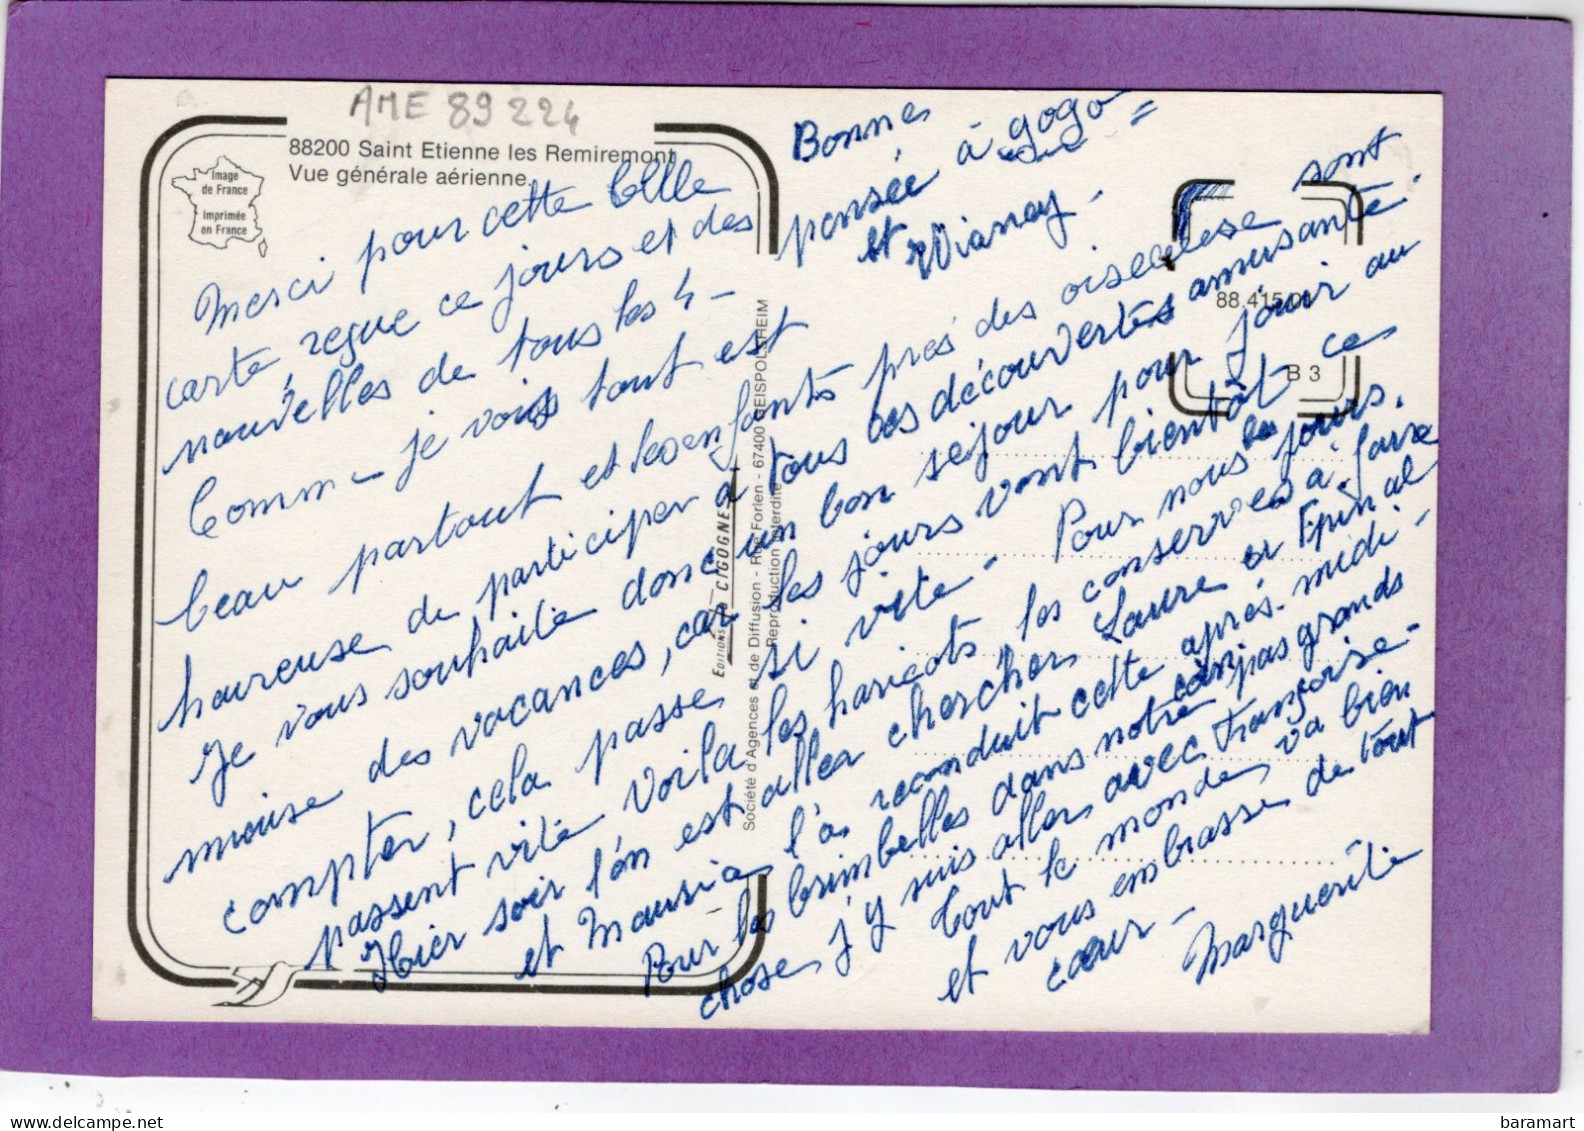 AME 89 224
88200 Saint Etienne les Remiremont
Vue générale aérienne.
Image
de France
Imprimée
en France
Bonnes
pensée à gogo
et Vianey.
Merci pour cette belle
carte, reçue ce jours et des
nouvelles de tous les 4 -
Comme je vois tout est
beau partout et les enfants près des oiseause sont
heureuse de participer à tous ces découvertes amusante.
Je vous souhaite donc un bon séjour pour jouir au
mieuse des vacances, car les jours vont bientôt ce
compter, cela passe si vite - Pour nous les jours
passent vite voila les haricots les conserves à faire.
Hier soir l'on est aller chercher Laure a Epinal
et Maurice l'a reconduit cette après-midi -
Pour les brimbelles dans notre coin pas grands
chose, j'y suis aller avec Françoise -
Tout le monde va bien
et vous embrasse de tout
cœur -
Marguerite
Editions CIGOGNE
Société d'Agences et de Diffusion - Rue Forlen - 67400 GEISPOLSHEIM
Reproduction interdite
88.415.0
B 3
delcampe.net
baramart